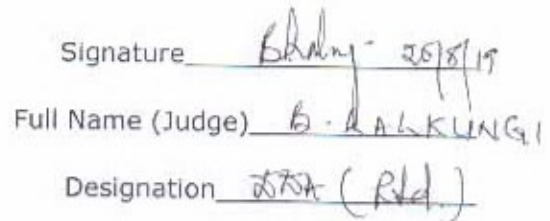 Signature 26/8/19
Full Name (Judge) B. RALKUNGI
Designation (Rtd.)